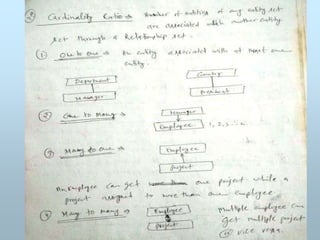 Cardinality Ratio → Number of entities of any entity set
are associated with another entity
set through a Relationship set.
① One to one → An entity associated with at most one
entity.
Department
Manager
Country
President
② One to Many → Manager
Employee 1, 2, 3 ... n
③ Many to one → Employee
project
An Employee can get one project while a
project assigned to more than one employee
Many to Many → Employee
project
Multiple employee can
get multiple project
vice versa.